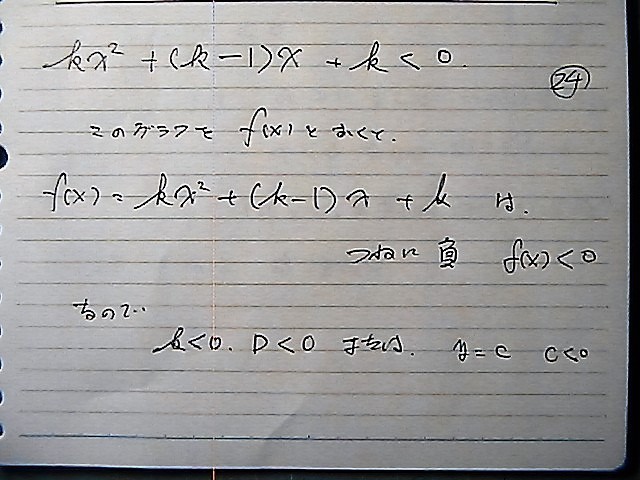 kx² + (k-1)x + k < 0.
㉔
このグラフを f(x) とおくと.
f(x) = kx² + (k-1)x + k は.
つねに 負 f(x) < 0
なので..
k<0. D<0 または. y=c c<0